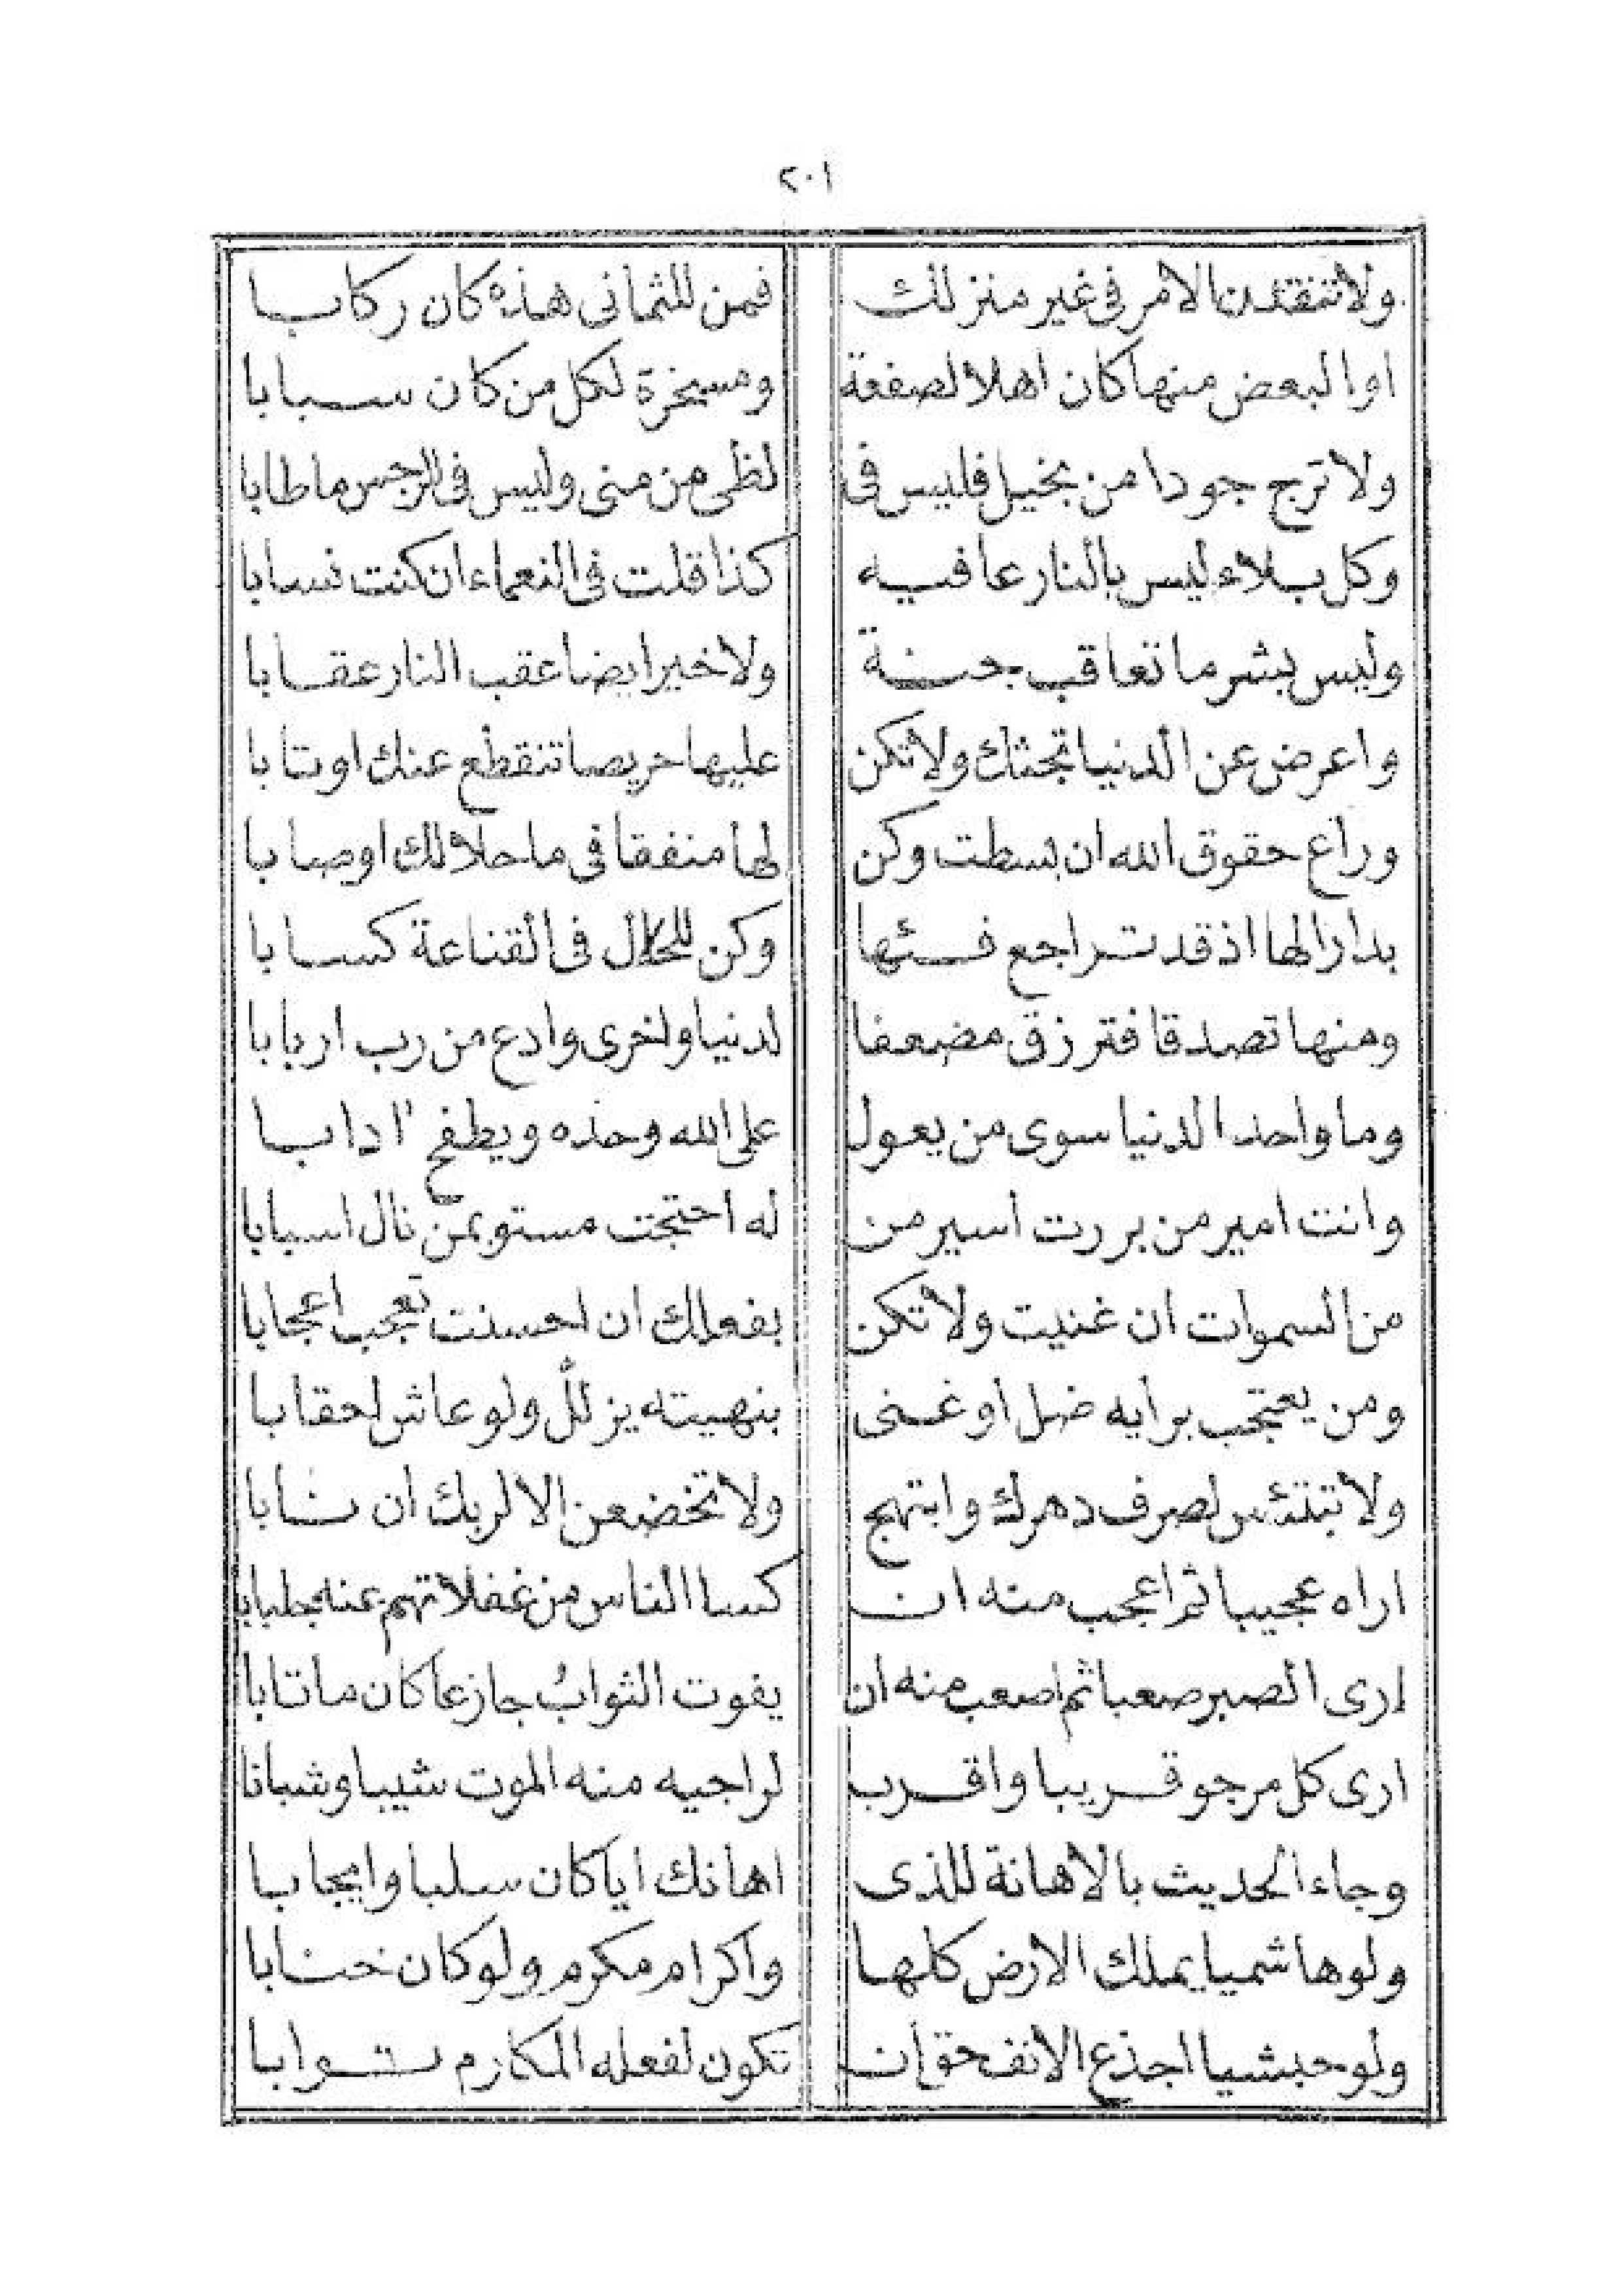 ٢٠١
ولا تنفقدن الامر فى غير منزلك فمن للثمانى هذه كان ركابا
او البعض منها كان اهلا لصفعة ومسخرة لكل من كان سبابا
ولا ترج جودا من بخيل فليس فى لظى من منى وليس فى الرجس ما طابا
وكل بلاء ليس بالنار عافيه كذا قلت فى النعماء ان كنت نسابا
وليس بشر ما تعاقب جنة ولا خيرا ايضا عقب النار عقابا
واعرض عن الدنيا تجئك ولا تكن عليها حريصا تنقطع عنك اوتابا
وراع حقوق الله ان بسطت وكن لها منفقا فى ما حلا لك اوصابا
بدارا لها اذ قد تراجع فيئها وكن للحلال فى القناعة كسابا
ومنها تصدقا فترزق مضعفا لدنيا واخرى وادع من رب اربابا
وما واحد الدنيا سوى من يعول على الله وحده ويطفح ادابا
وانت امير من بررت اسير من له احتجت مستو بمن نال اسبابا
من السموات ان غنيت ولا تكن بفعلك ان احسنت تعجب اعجابا
ومن يعتجب برايه ضل او غنى بنهيته يزلل ولو عاش احقابا
ولا تبتئس لصرف دهرك وابتهج ولا تخضعن الا لربك ان نابا
اراه عجيبا ثم اعجب منه ان كسا الناس من غفلاتهم عنه جلبابا
ارى الصبر صعبا ثم اصعب منه ان يفوت الثوابُ جازعا كان ما تابا
ارى كل مرجو قريبا واقرب لراجيه منه الموت شيبا وشبانا
وجاء الحديث بالاهانة للذى اهانك ايا كان سلبا وايجابا
ولو هاشميا يملك الارض كلها واكرام مكرم ولو كان خنابا
ولو حبشيا اجذع الانف حق ان تكون لفعله المكارم ثوابا